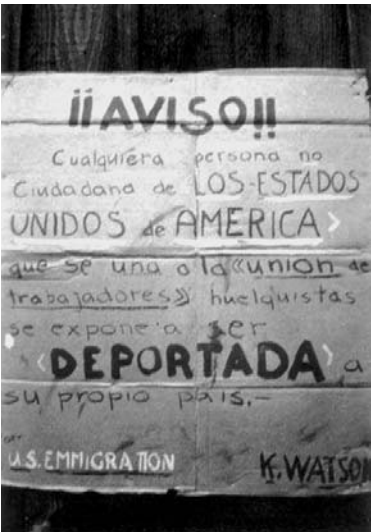 ¡¡AVISO!!
Cualquiera persona no
Ciudadana de LOS-ESTADOS
UNIDOS de AMERICA
que se una a la «union de
trabajadores» huelquistas
se expone a ser
«DEPORTADA» a
su propio país.-
U.S. EMMIGRATION K. WATSON